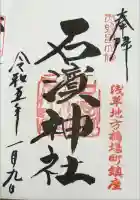 奉拝
浅草地方橋場町鎮座
石濱神社
令和五年
一月九日